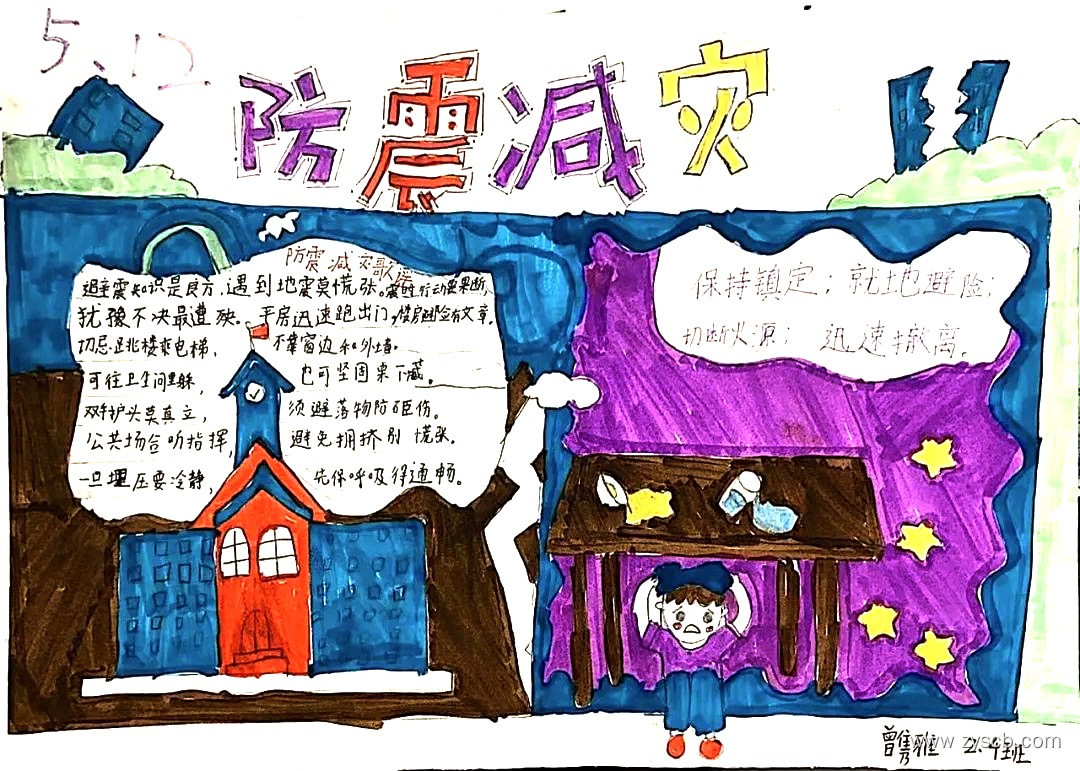 5.12
防震减灾
防震减灾歌谣
避震知识是良方,遇到地震莫慌张。震时行动要果断,
犹豫不决最遭殃。平房迅速跑出门,楼房避险有文章。
切忌跳楼乘电梯,不靠窗边和外墙。
可往卫生间里躲,也可坚固桌下藏。
双手护头莫直立,须避落物防砸伤。
公共场合听指挥,避免拥挤别慌张。
一旦埋压要冷静,先保呼吸得通畅。
保持镇定;就地避险;
切断火源;迅速撤离。
曾隽雅 2.4班
www.zyscb.com